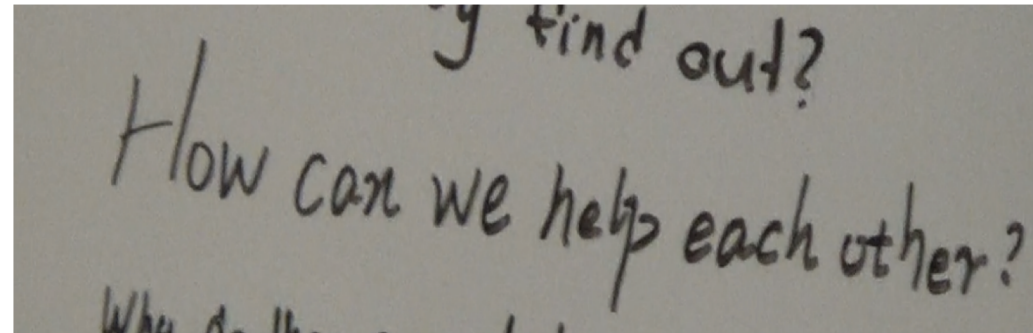 find out?
How can we help each other?
Why do